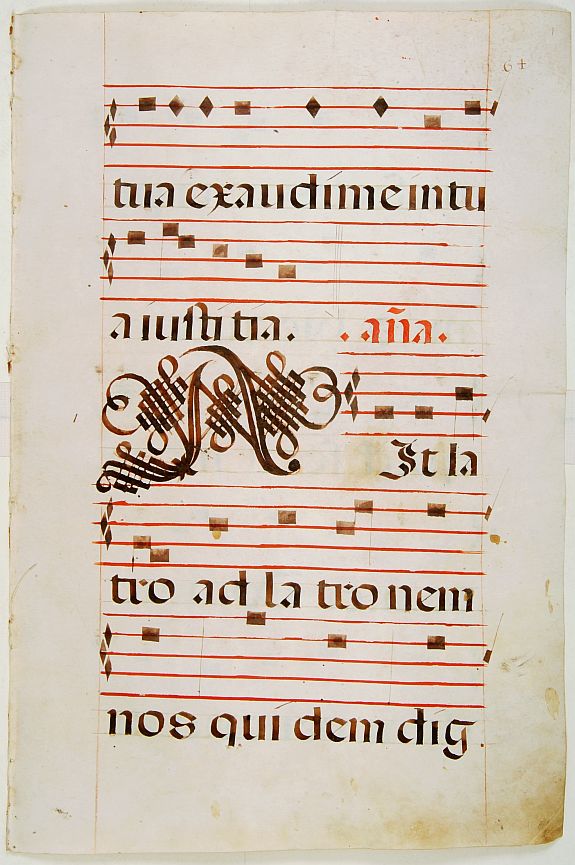 64
tua exaudi me in tu
a iusti tia. . aña.
AIt la
tro ad la tro nem
nos qui dem dig